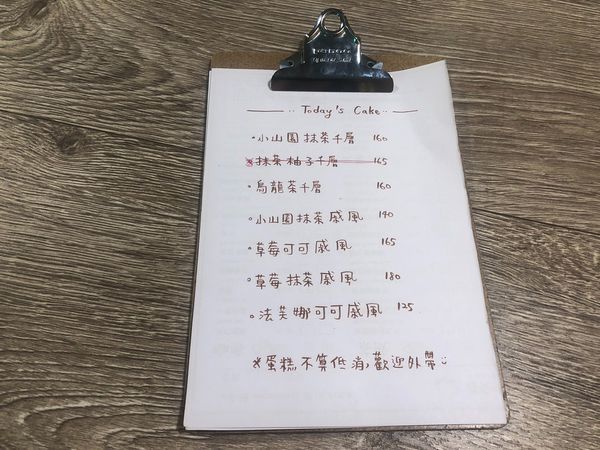 Today's Cake
小山園抹茶千層 160
抹茶柚子千層 165
烏龍茶千層 160
小山園抹茶戚風 140
草莓可可戚風 165
草莓抹茶戚風 180
法芙娜可可戚風 125
※蛋糕不算低消,歡迎外帶